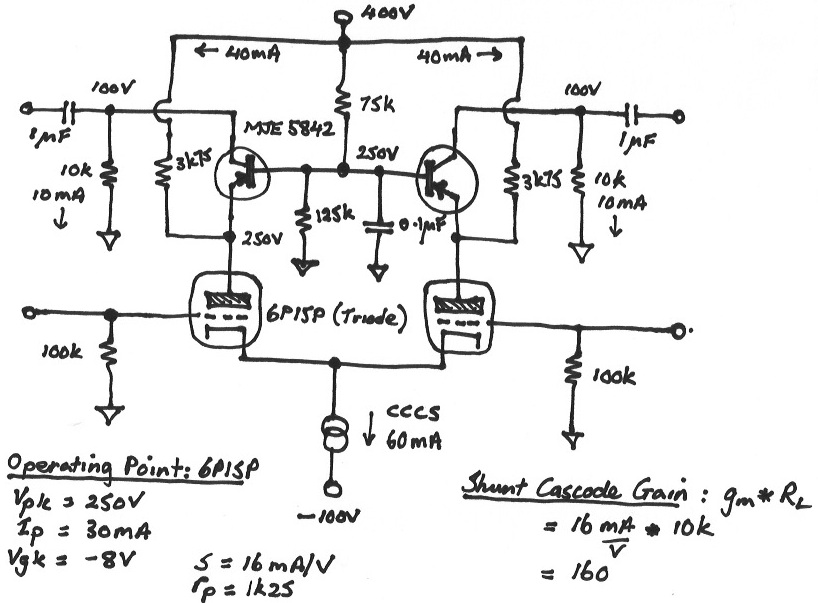 400V
← 40mA
40mA →
100V
100V
75k
MJE 5842
1µF
1µF
250V
10k
3k75
3k75
10k
10mA
↓
10mA
↓
125k
0.1µF
250V
6P15P (Triode)
100k
100k
↓ CCCS
60mA
Operating Point: 6P15P
Vpk = 250V
Ip = 30mA
Vgk = -8V
-100V
S = 16mA/V
rp = 1k25
Shunt Cascode Gain : gm * RL
= 16 mA/V * 10k
= 160